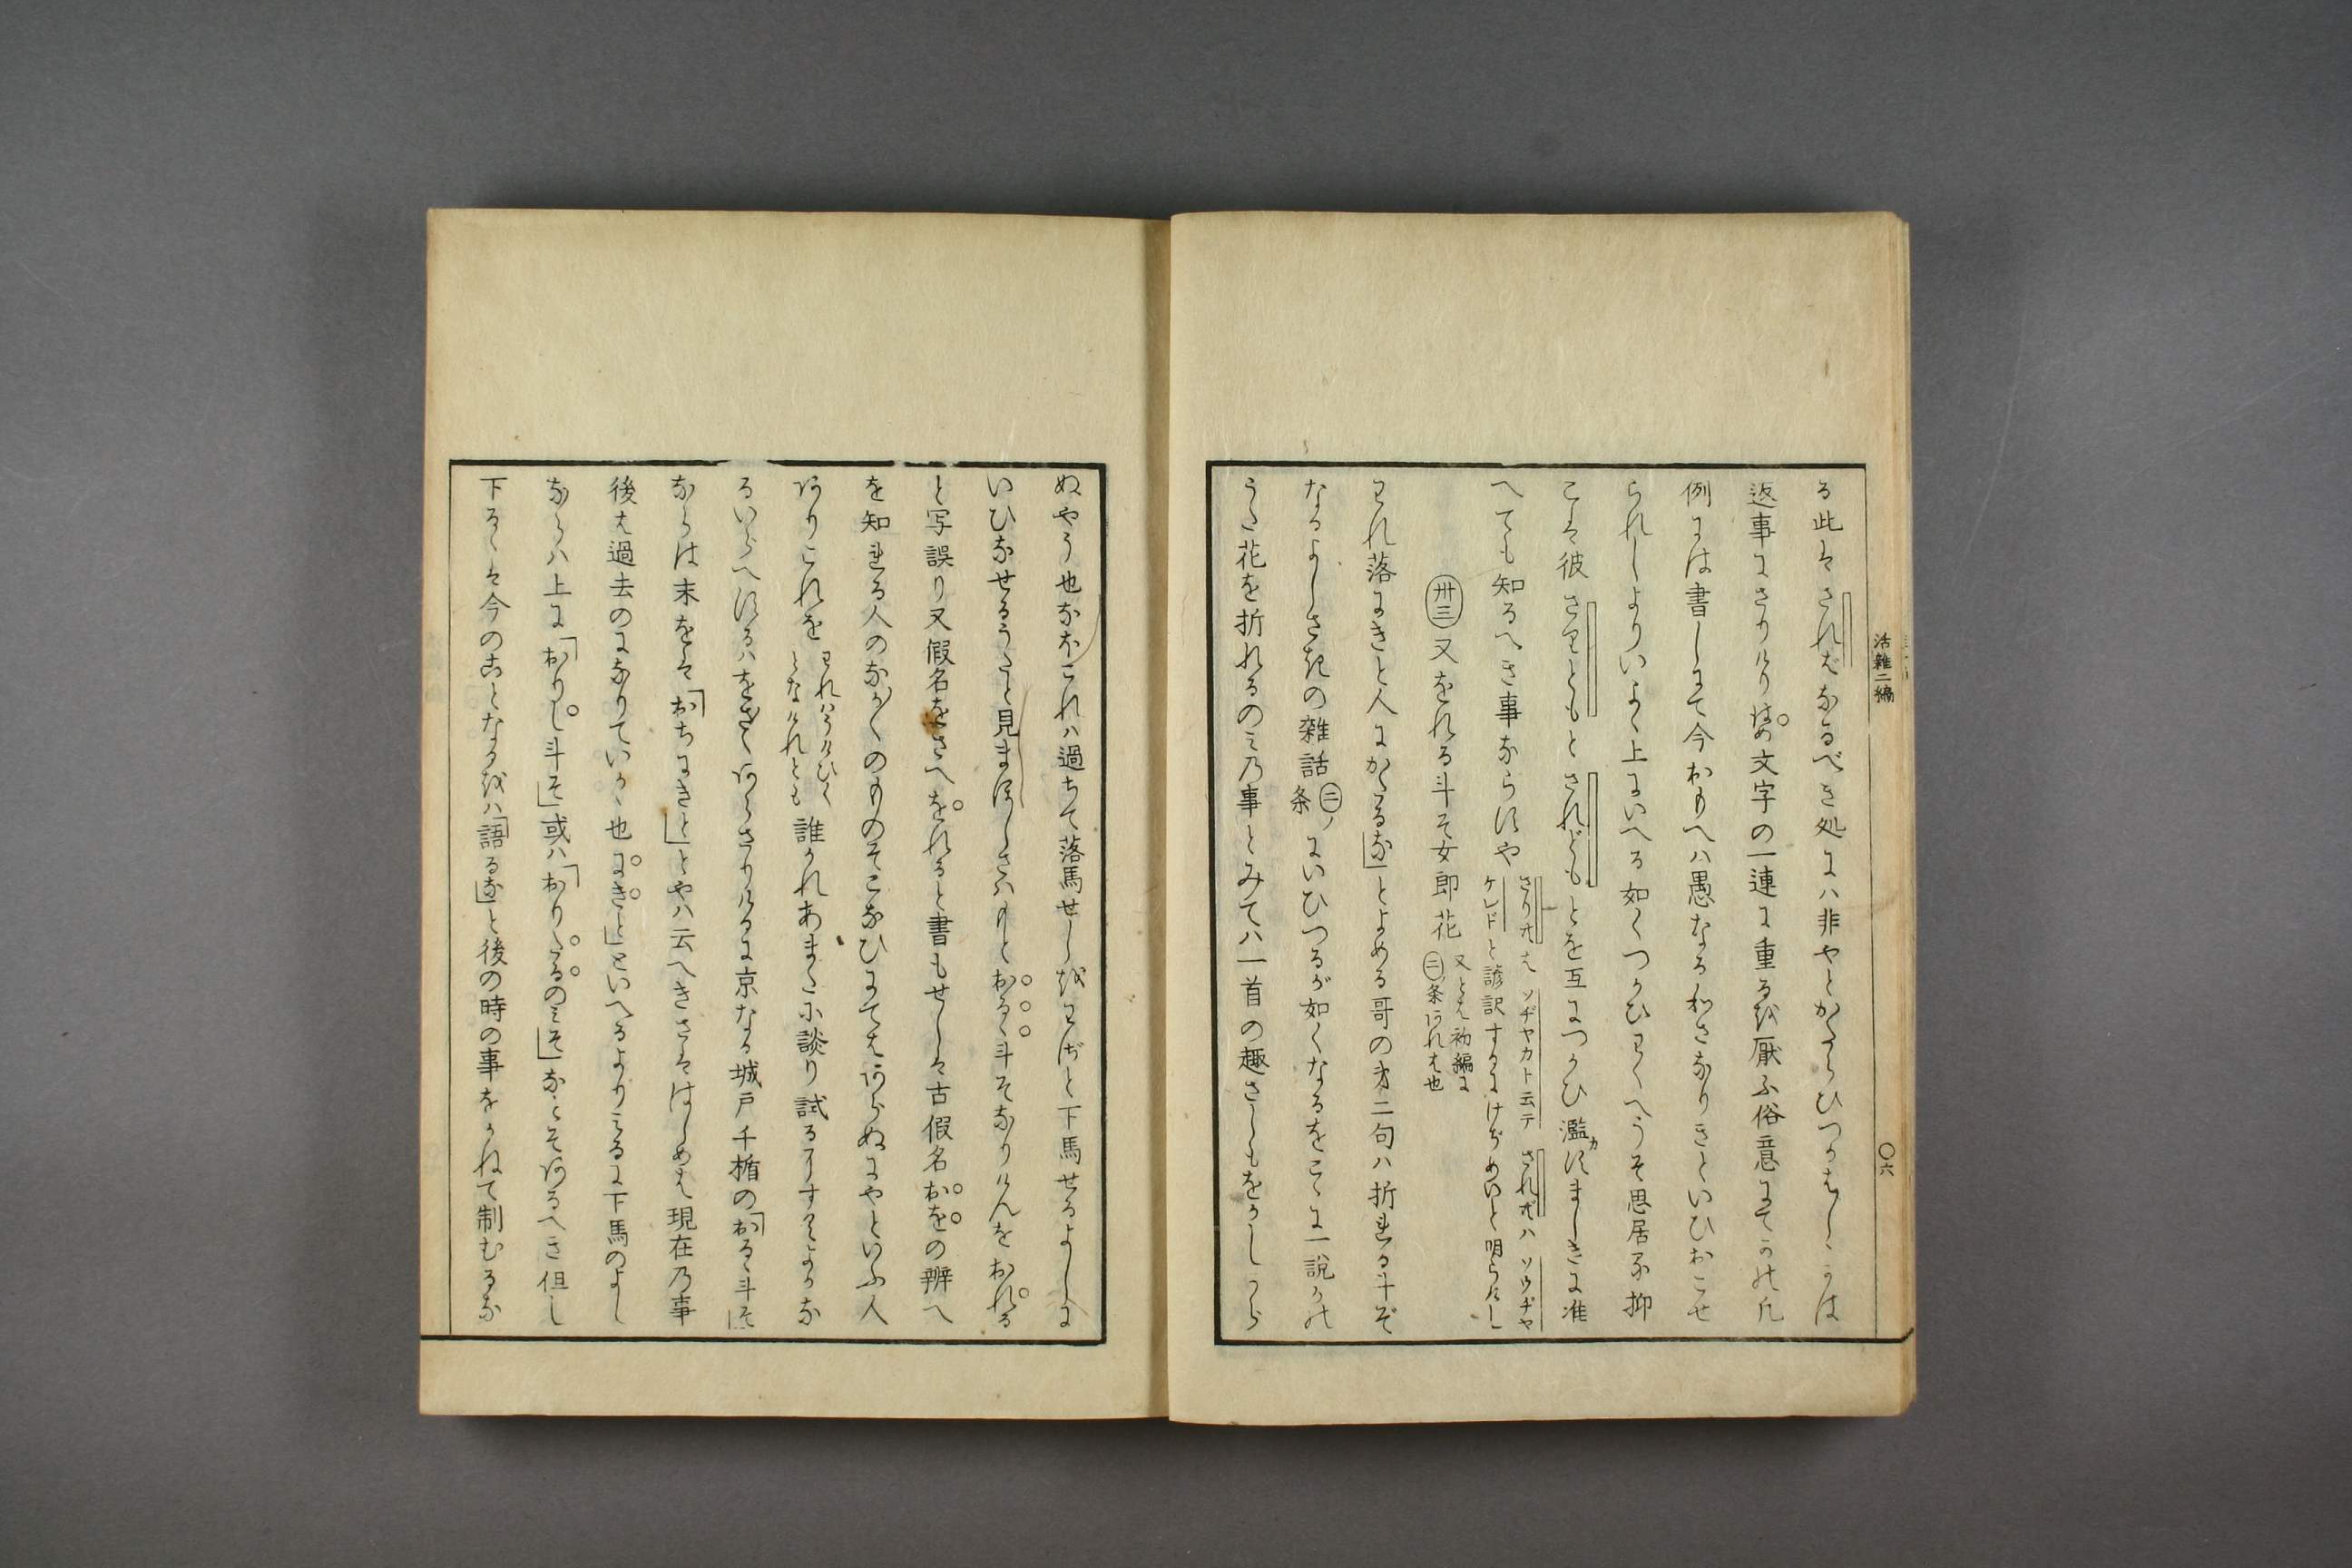 る此はさればなるべき処には非やとかたらひつかはしゝかは
返事にさりけりはの文字の一連に重るを厭ふ俗意にてかの凡
例には書しにて今おもへは愚なる私さなりきといひおこせ
られしよりいよゝ上にいへる如くつかひわくへうそ思居ぬ抑
こは彼さりともとされどもとを互につかひ濫すましきに准
へても知るへき事ならすや
さりとはソヂヤカト云テされどハソウヂヤ
ケレドと諺訳するにけぢめいと明らけし
卅三又をれる斗そ女郎花
又とは初編に
二条にあれは也
われ落にきと人にかたるなとよめる哥の才二句ハ折れる斗ぞ
なるよしさきの雑話二ノ条にいひつるが如くなるをこゝに一説かの
うた花を折れるのミ乃事とみてハ一首の趣さしもをかしから
活雑二編
〇六
ぬやう也なほこれハ過ちて落馬せしをわざと下馬せるよしに
いひなせるうたと見まほしさハもとおるゝ斗そなりけんをおれる
と写誤り又假名をさへをれると書もせしは古假名おをの辨へ
を知れる人のなか〳〵のものそこなひにてはあらぬにやといふ人
ありこれを
われハうけひく
となけれとも
誰かれあまたに談り試るにすへてよかな
るいらへするハをさ〳〵あらさりけるに京なる城戸千楯のおるゝ斗そ
ならは末をはおちにきととやハ云へきさははしめは現在乃事
後は過去のになりていかゝ也にきとといへるよりミるに下馬のよし
ならハ上におりし斗そ或ハおりたるのミそなとそあるへき但し
下るゝは今のことなるをハ語るなと後の時の事をかねて制むるな